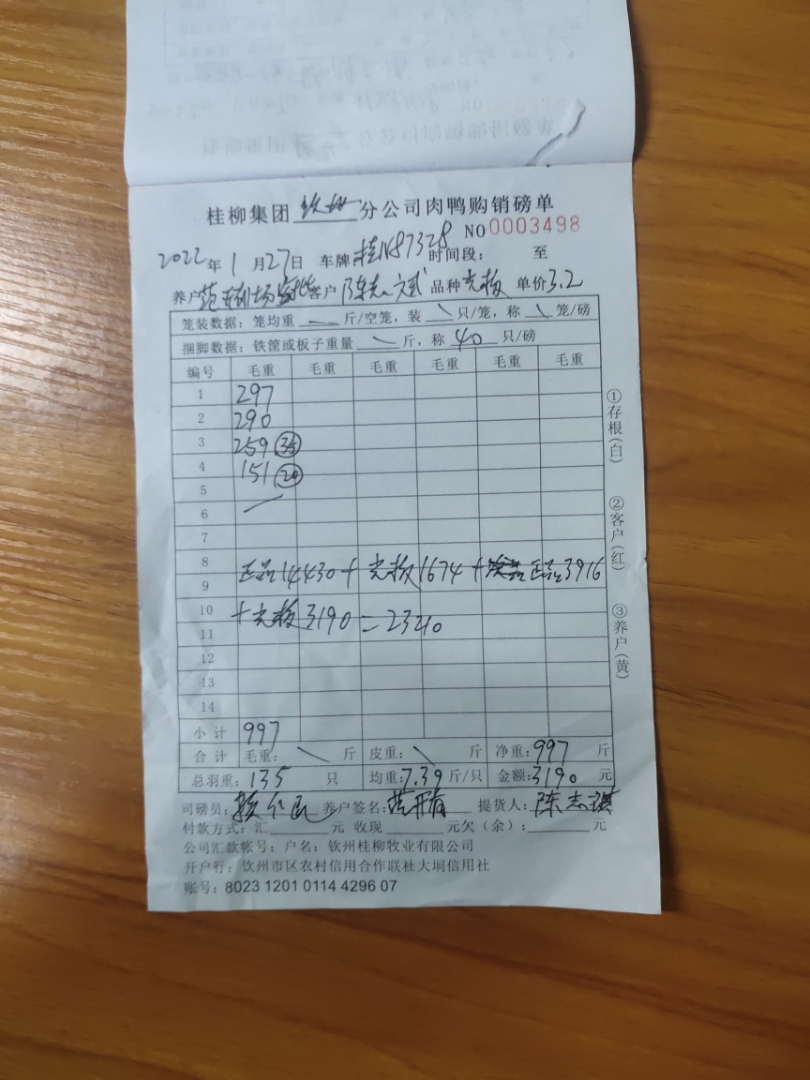 桂柳集团 钦州 分公司肉鸭购销磅单
NO 0003498
2022年1月27日 车牌 桂N87328 时间段： 至
养户 客户 陈志斌 品种 单价 3.2
笼装数据：笼均重 斤/空笼，装 只/笼，称 笼/磅
捆脚数据：铁筐或板子重量 斤，称 40 只/磅
编号 毛重 毛重 毛重 毛重 毛重 毛重
1 297
2 290
3 259 35
4 151 20
5
6
7
8
9
正品14430+ 1674+ 正品3916
10
11
+ 3190=23210
12
13
14
小计 997
合计 毛重： 斤 皮重： 斤 净重：997 斤
总羽重：135 只 均重：7.39 斤/只 金额：3190 元
司磅员： 养户签名： 提货人：陈志
付款方式：汇 元 收现 元欠（余）： 元
公司汇款帐号：户名：钦州桂柳牧业有限公司
开户行：钦州市区农村信用合作联社大垌信用社
账号：8023 1201 0114 4296 07
①存根（白）
②客户（红）
③养户（黄）